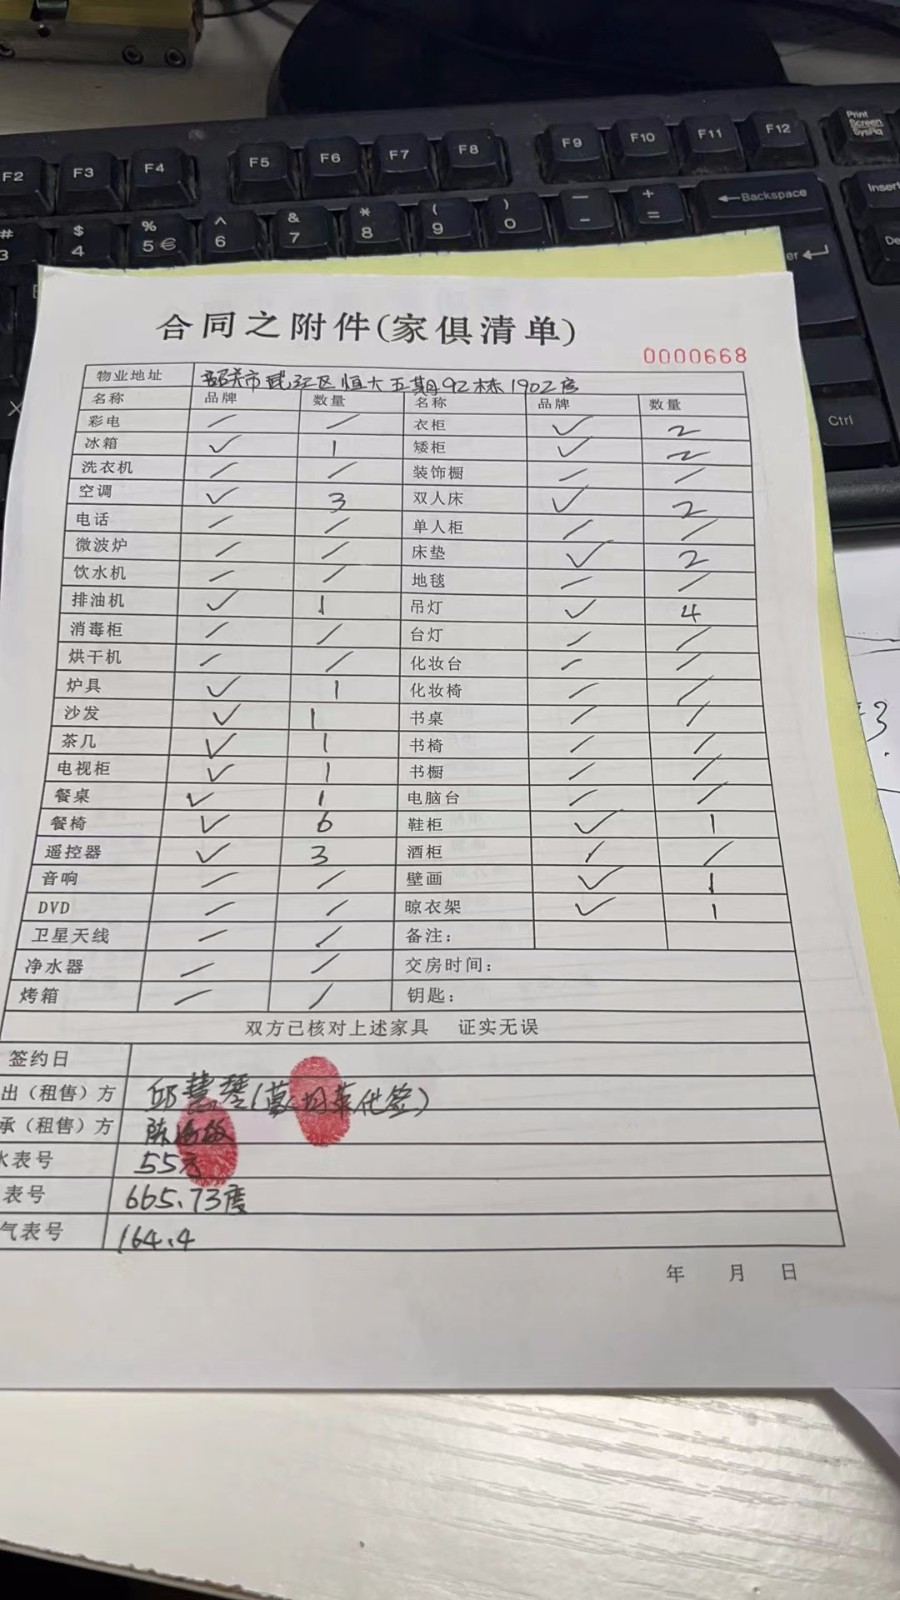 F2 F3 F4 F5 F6 F7 F8 F9 F10 F11 F12 Print Screen SysRq
# 3 $ 4 % 5 € ^ 6 & 7 * 8 ( 9 ) 0 — - + = ←Backspace Insert
合同之附件(家俱清单)
0000668
物业地址 韶关市武江区恒大五期92栋1902房
名称 品牌 数量 名称 品牌 数量
彩电 / / 衣柜 ✓ 2
冰箱 ✓ 1 矮柜 ✓ 2
洗衣机 / / 装饰橱 / /
空调 ✓ 3 双人床 ✓ 2
电话 / / 单人柜 / /
微波炉 / / 床垫 ✓ 2
饮水机 / / 地毯 / /
排油机 ✓ 1 吊灯 ✓ 4
消毒柜 / / 台灯 / /
烘干机 / / 化妆台 / /
炉具 ✓ 1 化妆椅 / /
沙发 ✓ 1 书桌 / /
茶几 ✓ 1 书椅 / /
电视柜 ✓ 1 书橱 / /
餐桌 ✓ 1 电脑台 / /
餐椅 ✓ 6 鞋柜 ✓ 1
遥控器 ✓ 3 酒柜 / /
音响 / / 壁画 ✓ 1
DVD / / 晾衣架 ✓ 1
卫星天线 / / 备注：
净水器 / / 交房时间：
烤箱 / / 钥匙：
双方已核对上述家具 证实无误
签约日
出（租售）方 邱慧琴(代签)
承（租售）方 陈
水表号 55方
表号 665.73度
气表号 164.4
年 月 日
Ctrl